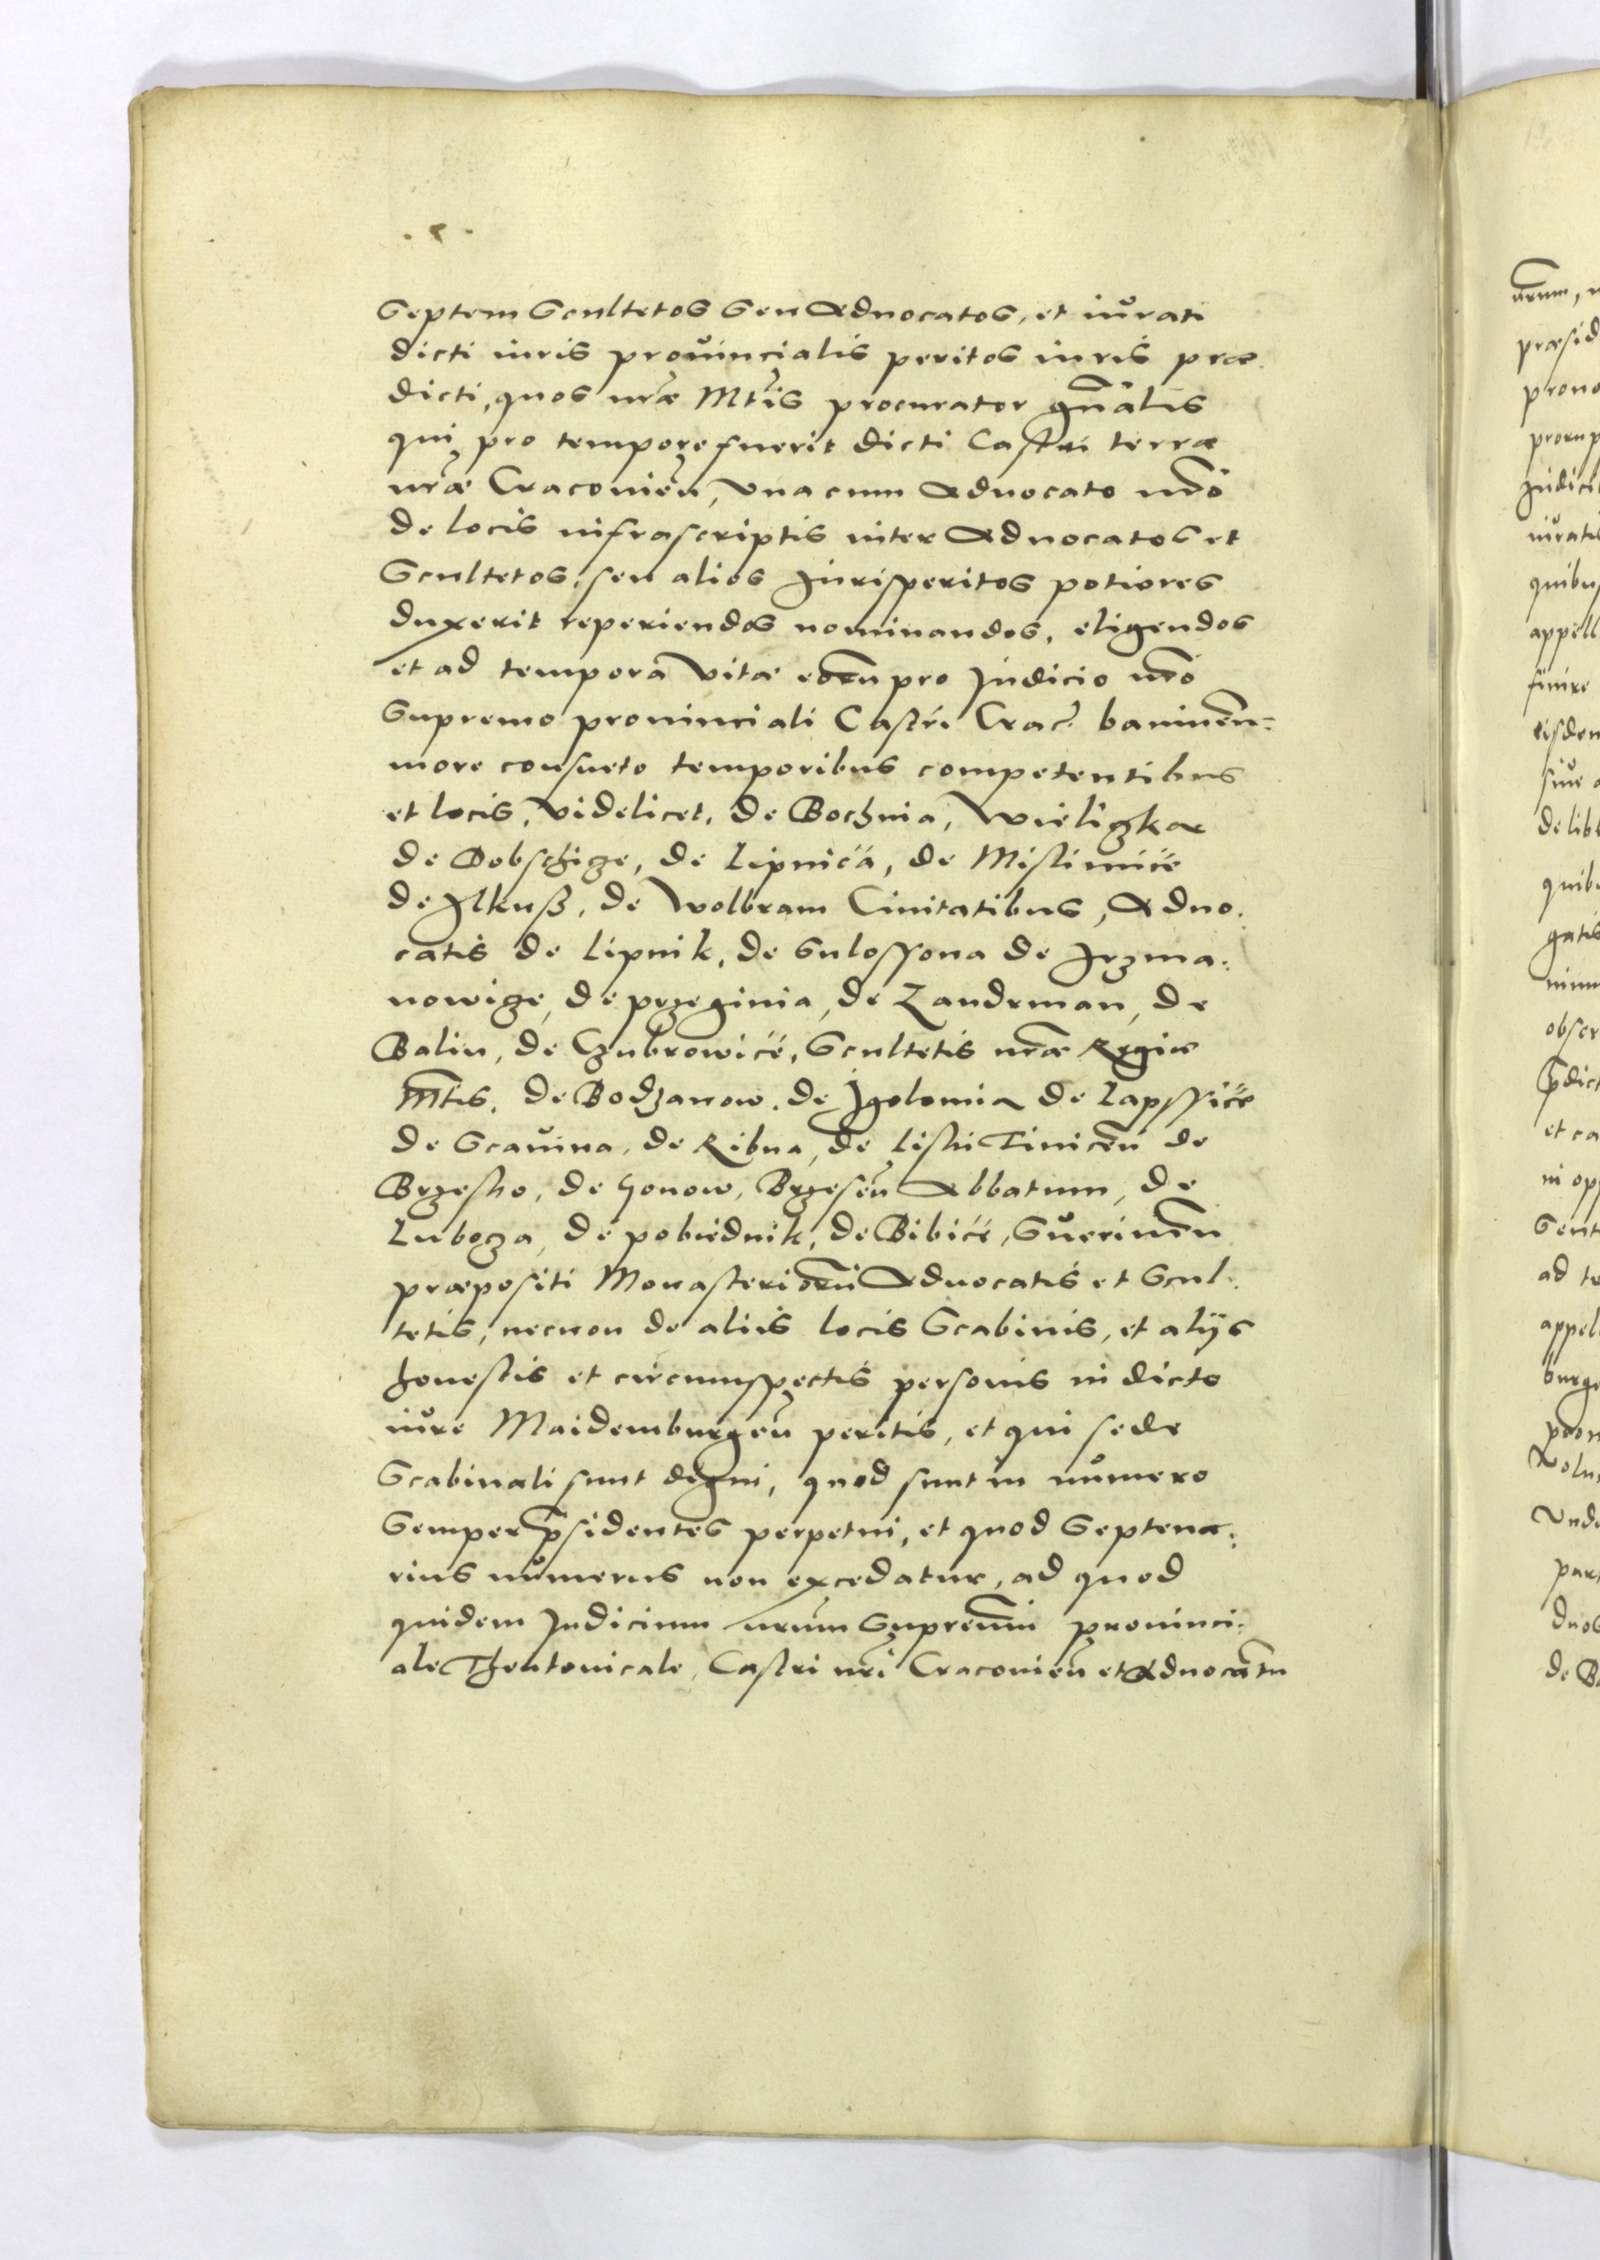 Septem Scultetos seu Aduocatos, et iurati
dicti iuris prouincialis peritos iuris præ
dicti, quos nr̄æ Mt̄is procurator gn̄ālis
qui pro tempore fuerit dicti Castri terræ
nr̄æ Craconieñ, vna cum Aduocato nr̄o
de locis infrascriptis inter Aduocatos et
Scultetos, seu alios Jurisperitos potiores
duxerit reperiendos nominandos, eligendos
et ad tempora vitæ eor̄u pro Judicio nr̄o
Supremo prouinciali Castri Crac: baniuen̄=
more consueto temporibus competentibus
et locis, videlicet, de Bochnia, Wieligkæ
de Dobschige, de Lipnića, de Mislimiće
de Ilkuß, de Wolbram Ciuitatibus, Aduo:
catis de Lipnik, de Sulossona de Irzma:
nowige, de przeginia, de Zandrman, de
Balin, de Czubrowiće, Scultetis nr̄æ Regiæ
Mt̄is, de Bodzanow, de Igolomia de Lapssiće
de Scauina, de Ribna, de Liski Tinicen̄ de
Brzesko, de honow, Brzesen̄ Abbatum, de
Luboza, de pobiednik, de Bibiće, Suerinen̄
præpositi Monasterior̄u Aduocatis et Scul:
tetis, necnon de aliis locis Scabinis, et alijs
honestis et circumspectis personis in dicto
iure Maidemburgen̄ peritis, et qui sede
Scabinali sunt digni, quod sunt in numero
Semper p̄sidentes perpetui, et quod Septena:
rius numerus non excedatur, ad quod
quidem Judicium nr̄um Supremum prouinci:
ale Theutonicale, Castri nr̄i Craconien̄ et Aduocātu